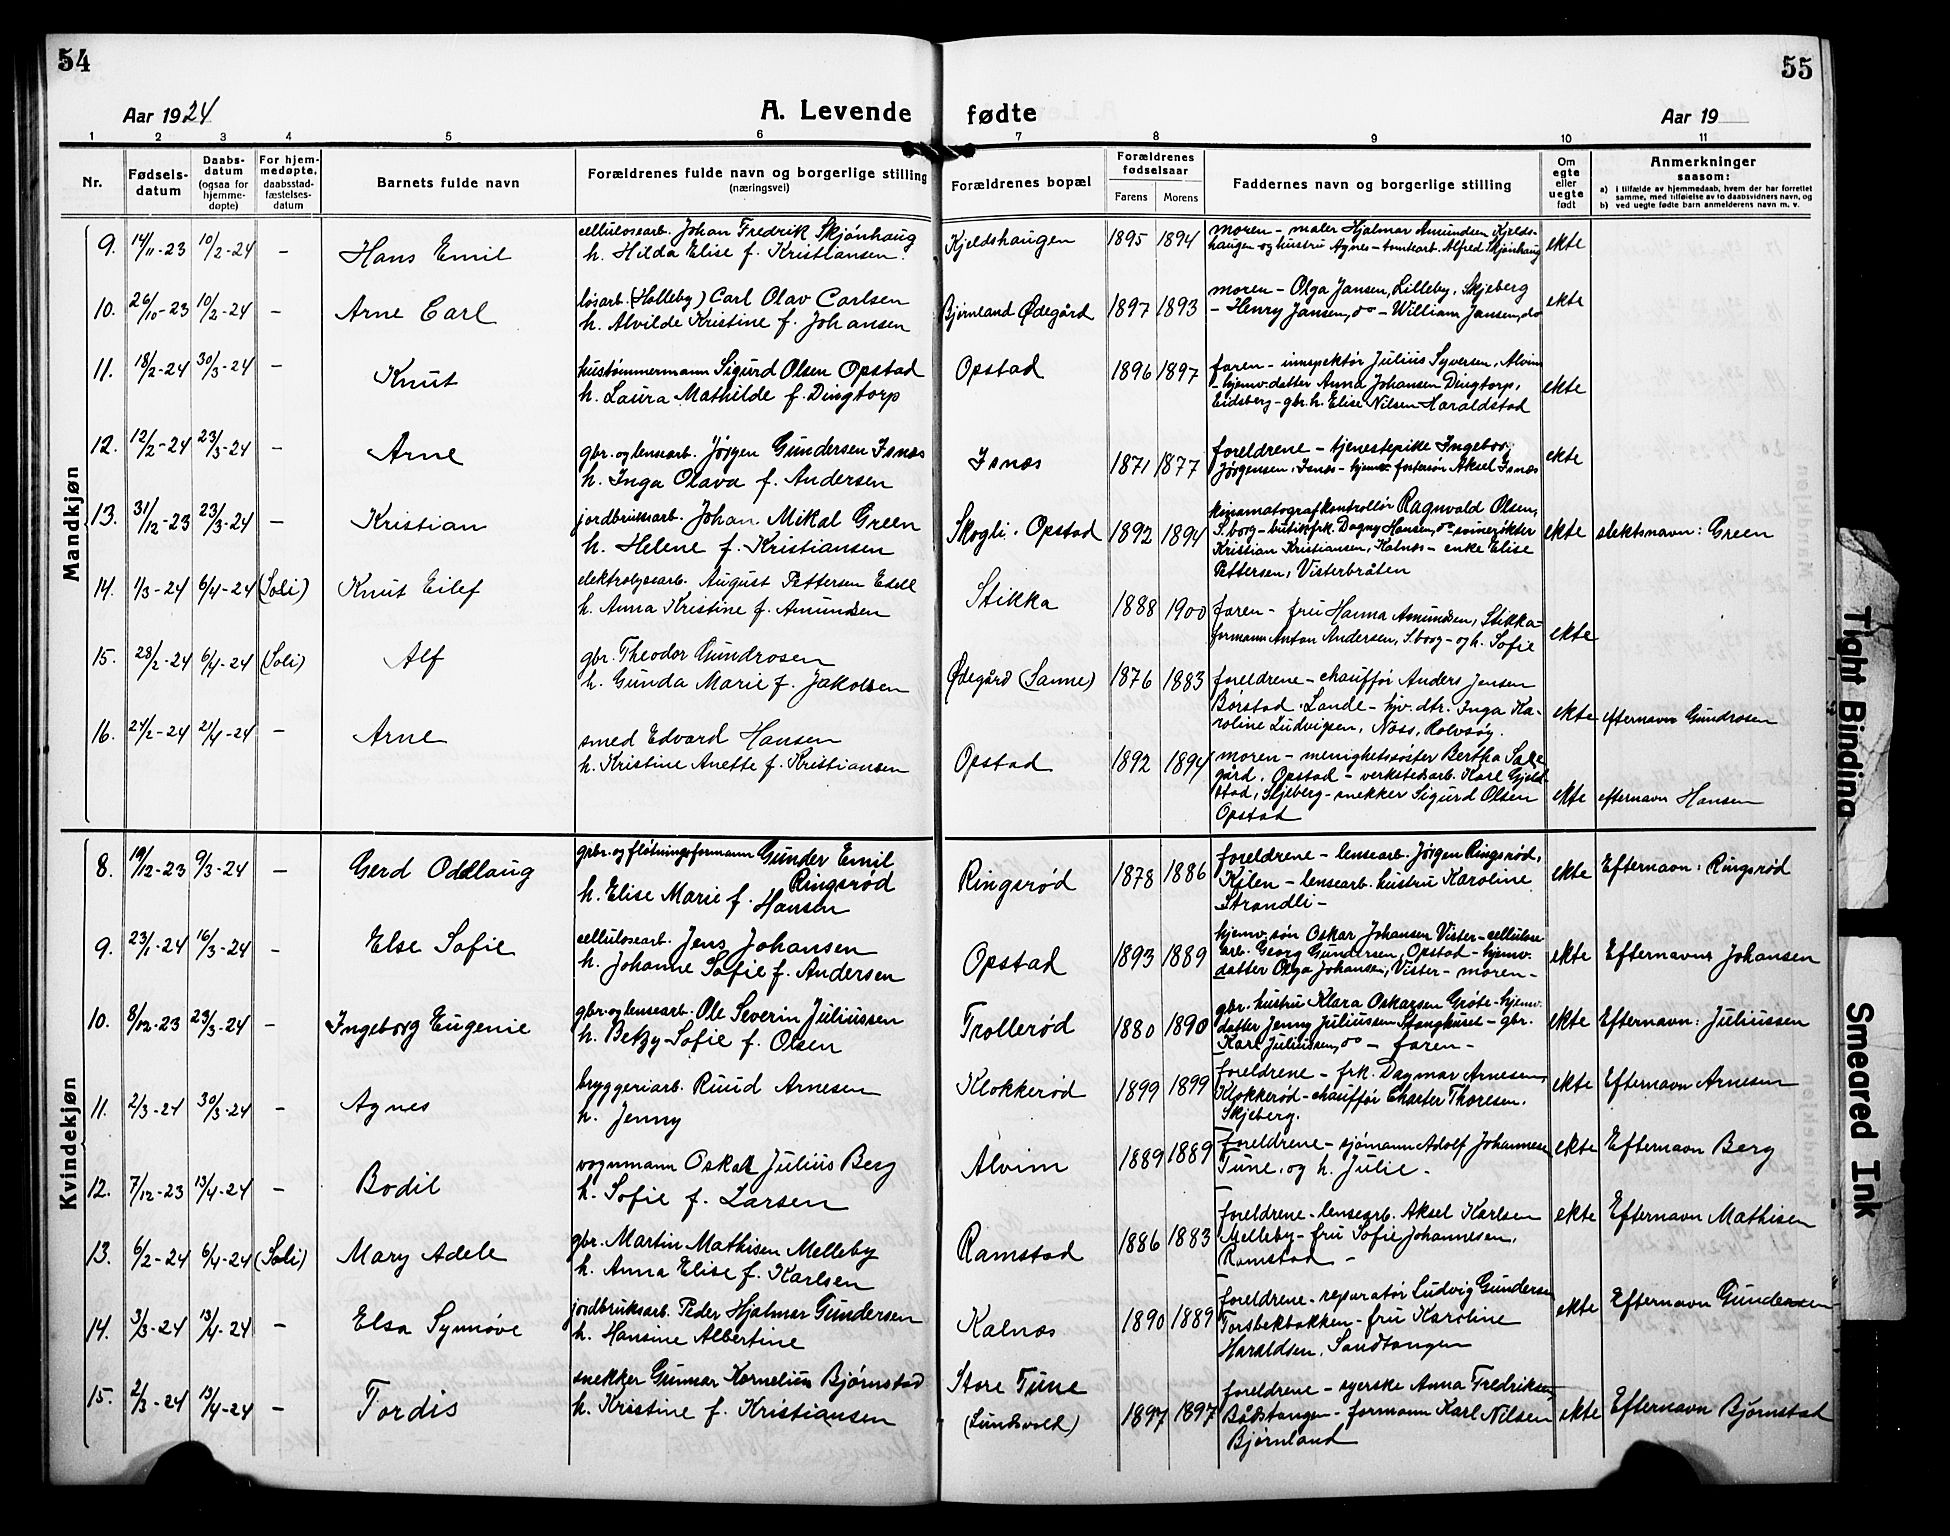 54
55
Aar 1924
A. Levende fødte
Aar 19
1 2 3 4 5 6 7 8 9 10 11
Nr.
Fødsels-
datum
Daabs-
datum
(ogsaa for
hjemme-
døpte)
For hjem-
medøpte,
daabsstad-
fæstelses-
datum
Barnets fulde navn
Forældrenes fulde navn og borgerlige stilling
(næringsvei)
Forældrenes bopæl
Forældrenes
fødselsaar
Farens Morens
Faddernes navn og borgerlige stilling
Om
egte
eller
uegte
født
Anmerkninger
saasom:
a) i tilfælde av hjemmedaab, hvem der har forrettet
samme, med tilføielse av to daabsvidners navn, og
b) ved uegte fødte barn anmelderens navn m. v.
Mandkjøn
9. 14/11-23 10/2-24 - Hans Emil
cellulosearb. Johan Fredrik Skjønhaug
h. Hilda Elise f. Kristiansen.
Kjeldshaugen 1895 1894
moren - maler Hjalmar Amundsen Kjelds-
haugen og hustru Agnes - tomtearb. Alfred Skjønhaug
ekte
10. 26/10-23 10/2-24 - Arne Carl
løsarb. (Holleby) Carl Olav Carlsen
h. Alvilde Kristine f. Johansen
Bjørnland Ødegård 1897 1893
moren - Olga Jansen, Lilleby, Skjeberg
- Henry Jansen, do - William Jansen, do
ekte
11. 18/2-24 30/3-24 - Knut
hustømmermann Sigurd Olsen Opstad
h. Laura Mathilde f. Dingtorp
Opstad 1896 1897
faren - inspektør Julius Syversen, Alvim
- hjemv. datter Anna Johansen Dingtorp,
Eidsberg - gbr. h. Elise Nilsen Haraldstad
ekte
12. 12/2-24 23/3-24 - Arne
gbr. og lensearb. Jørgen Gundersen Isnæs
h. Inga Olava f. Andersen
Isnæs 1871 1877
foreldrene - tjenestepike Ingeborg
Jørgensen, Isnæs - hjemv. fostersøn Aksel Isnæs
ekte
13. 31/12-23 23/3-24 - Kristian
jordbruksarb. Johan Mikal Green
h. Helene f. Kristiansen
Skogli, Opstad 1892 1894
kinematografkontrollør Ragnvald Olsen,
S.borg - butikfrk. Dagny Hansen, do - svinerøkter
Kristian Kristiansen, Kalnes - enke Elise
Pettersen, Visterbråten
ekte slektsnavn: Green
14. 1/3-24 6/4-24 (Soli) Knut Eilef
elektrolysearb. August Pettersen Edell
h. Anna Kristine f. Amundsen
Stikka 1888 1900
faren - fru Hanna Amundsen, Stikka -
formann Anton Andersen, S.borg - og h. Sofie
ekte
15. 28/2-24 6/4-24 (Soli) Alf
gbr. Theodor Gundrosen
h. Gunda Marie f. Jakobsen
Ødegård (Sanne) 1876 1883
foreldrene - chauffør Anders Jensen
Børstad, Lande - hjv. dtr. Inga Ka-
roline Ludvigsen, Næss, Rolvsøy.
ekte efternavn Gundrosen
16. 24/2-24 21/4-24 - Arne
smed Edvard Hansen
h. Kristine Anette f. Kristiansen
Opstad 1892 1894
moren - menighetssøster Bertha Sole-
gård, Opstad - verkstedsarb. Karl Gjeld-
stad, Skjeberg - snekker Sigurd Olsen
Opstad
ekte efternavn Hansen
Kvindekjøn
8. 19/12-23 9/3-24 - Gerd Oddlaug
grbr. og fløtningsformann Gunder Emil
Ringsrød
h. Elise Marie f. Hansen
Ringsrød 1878 1886
foreldrene - lensearb. Jørgen Ringsrød,
Kilen - lensearb. hustru Karoline
Strandli -
ekte Efternavn: Ringsrød
9. 23/1-24 16/3-24 - Else Sofie
cellulosearb. Jens Johansen
h. Johanne Sofie f. Andersen
Opstad 1893 1889
hjemv. søn Oskar Johansen Vister - cellulose
arb. Georg Gundersen, Opstad - hjemv.
datter Olga Johansen, Vister - moren -
ekte Efternavn: Johansen
10. 8/12-23 23/3-24 - Ingeborg Eugenie
gbr. og lensearb. Ole Severin Juliussen
h. Betzy Sofie f. Olsen
Trollerød 1880 1890
gbr. hustru Klara Oskarsen Grøte - hjemv.
datter Jenny Juliussen Stanghuset - gbr.
Karl Juliussen, do - faren -
ekte Efternavn: Juliussen
11. 2/3-24 30/3-24 - Agnes
bryggeriarb. Ruud Arnesen
h. Jenny
Klokkerød 1899 1899
foreldrene - frk. Dagmar Arnesen,
Klokkerød - chauffør Charter Thoresen,
Skjeberg.
ekte Efternavn Arnesen
12. 7/12-23 13/4-24 - Bodil
vognmann Oskar Julius Berg
h. Sofie f. Larsen
Alvim 1889 1889
foreldrene - sjømann Adolf Johannesen
Tune, og h. Julie -
ekte Efternavn Berg
13. 6/2-24 6/4-24 (Soli) Mary Adele
gbr. Martin Mathisen Melleby
h. Anna Elise f. Karlsen
Ramstad 1886 1883
foreldrene - lensearb. Aksel Karlsen
Melleby - fru Sofie Johannesen,
Ramstad -
ekte Efternavn Mathisen
14. 3/3-24 13/4-24 - Elsa Synnøve
jordbruksarb. Peder Hjalmar Gundersen
h. Hansine Albertine
Kalnæs 1890 1889
foreldrene - reparatør Ludvig Gundersen
Torsbekbakken - fru Karoline
Haraldsen, Sandtangen
ekte Efternavn Gundersen
15. 2/3-24 13/4-24 - Tordis
snekker Gunnar Kornelius Bjørnstad
h. Kristine f. Kristiansen
Store Tune
(Lundsvold) 1897 1897
foreldrene - syerske Anna Fredriksen,
Bådstangen - formann Karl Nilsen
Bjørnland
ekte Efternavn Bjørnstad
Tight Binding
Smeared Ink